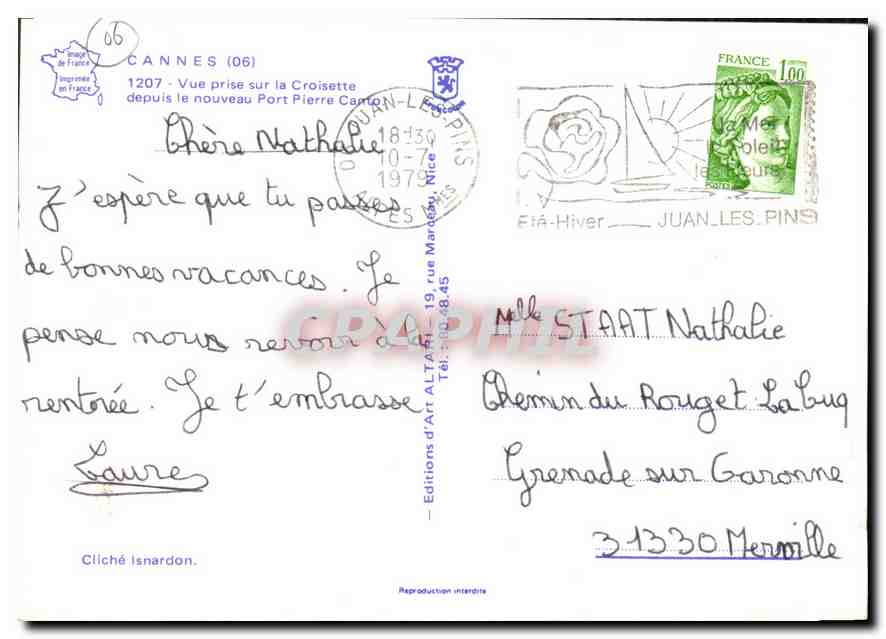 06
Image
de France
Imprimée
en France
CANNES (06)
1207 - Vue prise sur la Croisette
depuis le nouveau Port Pierre Canto
Chère Nathalie
J'espère que tu passes
de bonnes vacances. Je
pense nous revoir à la
rentrée. Je t'embrasse
Laure
Cliché Isnardon.
JUAN-LES-PINS
18H30
10-7
1979
Editions d'Art ALTARI - 19, rue Marceau, Nice
Tél. : 80.48.45
FRANCE 1,00
La Mer
le Soleil
les Fleurs
Eté-Hiver JUAN_LES_PINS
CPAPHIL
Melle STAAT Nathalie
Chemin du Rouget La Luq
Grenade sur Garonne
31330 Merville
Reproduction interdite